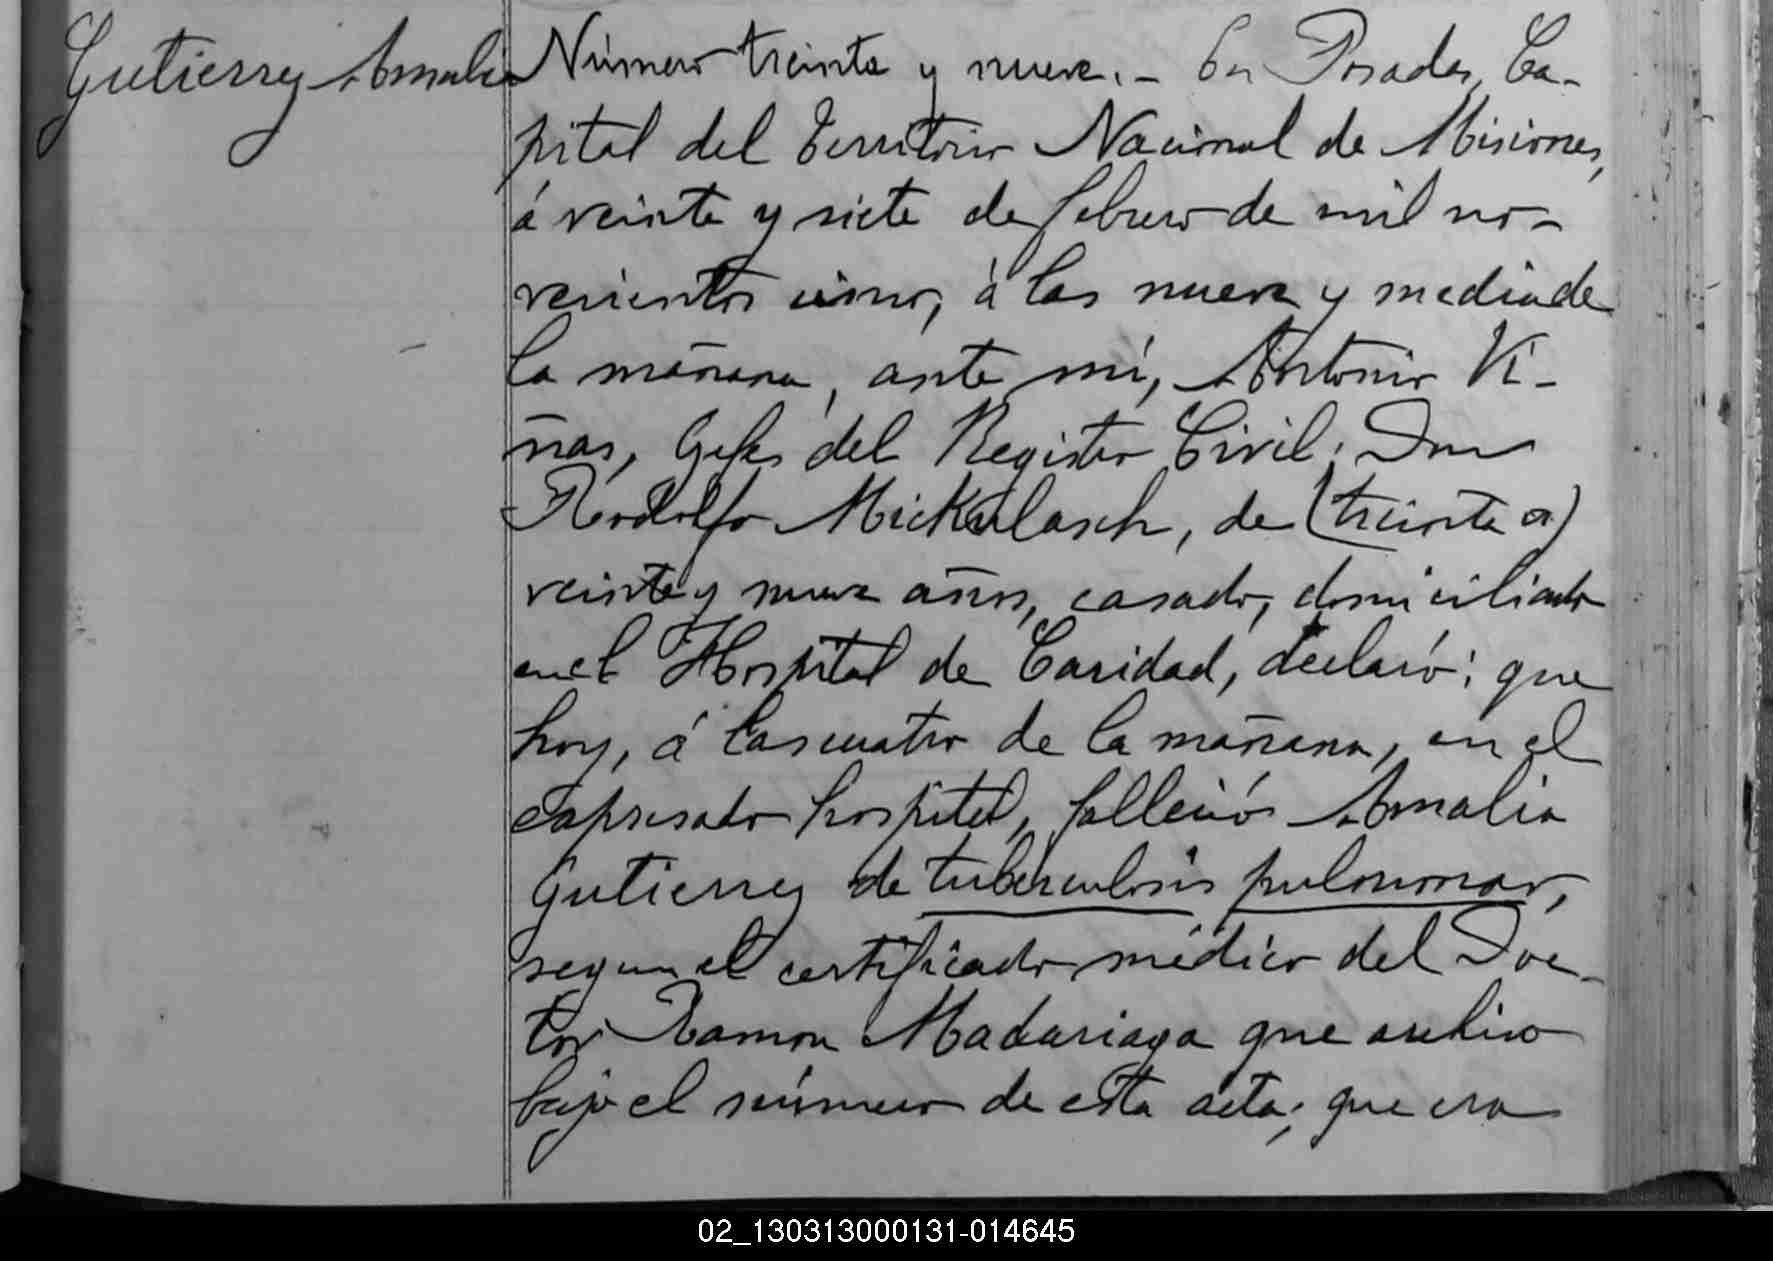 Gutierrez Amalia
Número treinta y nueve.- En Posadas, Ca-
pital del Territorio Nacional de Misiones,
á veinte y siete de febrero de mil no-
vecientos cinco, á las nueve y media de
la mañana, ante mí, Antonio Vi-
ñas, Gefe del Registro Civil; Don
Rodolfo Mickulasch, de (treinta a)
veinte y nueve años, casado, domiciliado
en el Hospital de Caridad, declaró: que
hoy, á las cuatro de la mañana, en el
expresado hospital, falleció Amalia
Gutierrez de tuberculosis pulmonar,
segun el certificado médico del Doc-
tor Ramon Madariaga que archivo
bajo el número de esta acta; que era
02_130313000131-014645